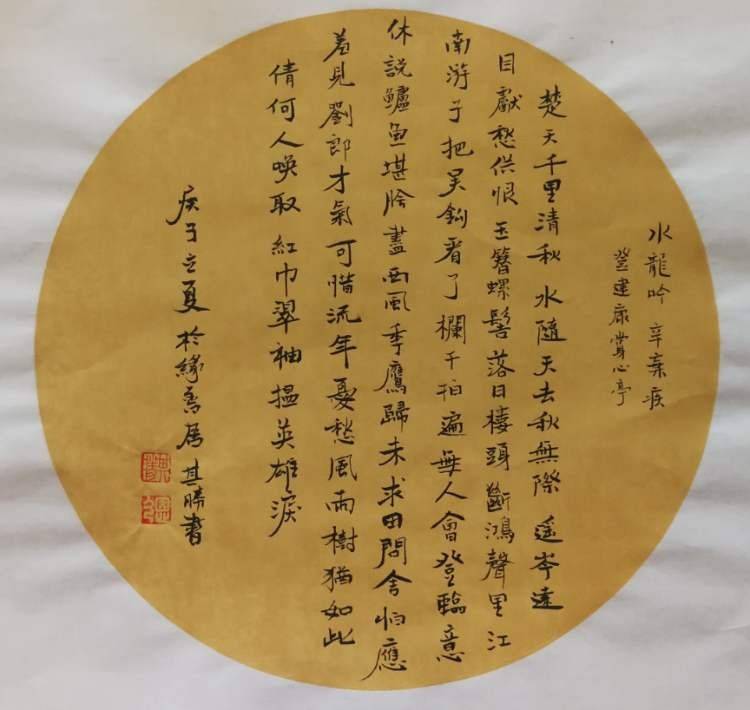 水龍吟 辛棄疾
登建康賞心亭
楚天千里清秋水隨天去秋無際遙岑遠
目獻愁供恨玉簪螺髻落日樓頭斷鴻聲里江
南游子把吴鉤看了欄干拍遍無人會登臨意
休説鱸魚堪膾盡西風季鷹歸未求田問舍怕應
羞見劉郎才氣可惜流年憂愁風雨樹猶如此
倩何人唤取紅巾翠袖揾英雄淚
庚子立夏於緣善居其勝書